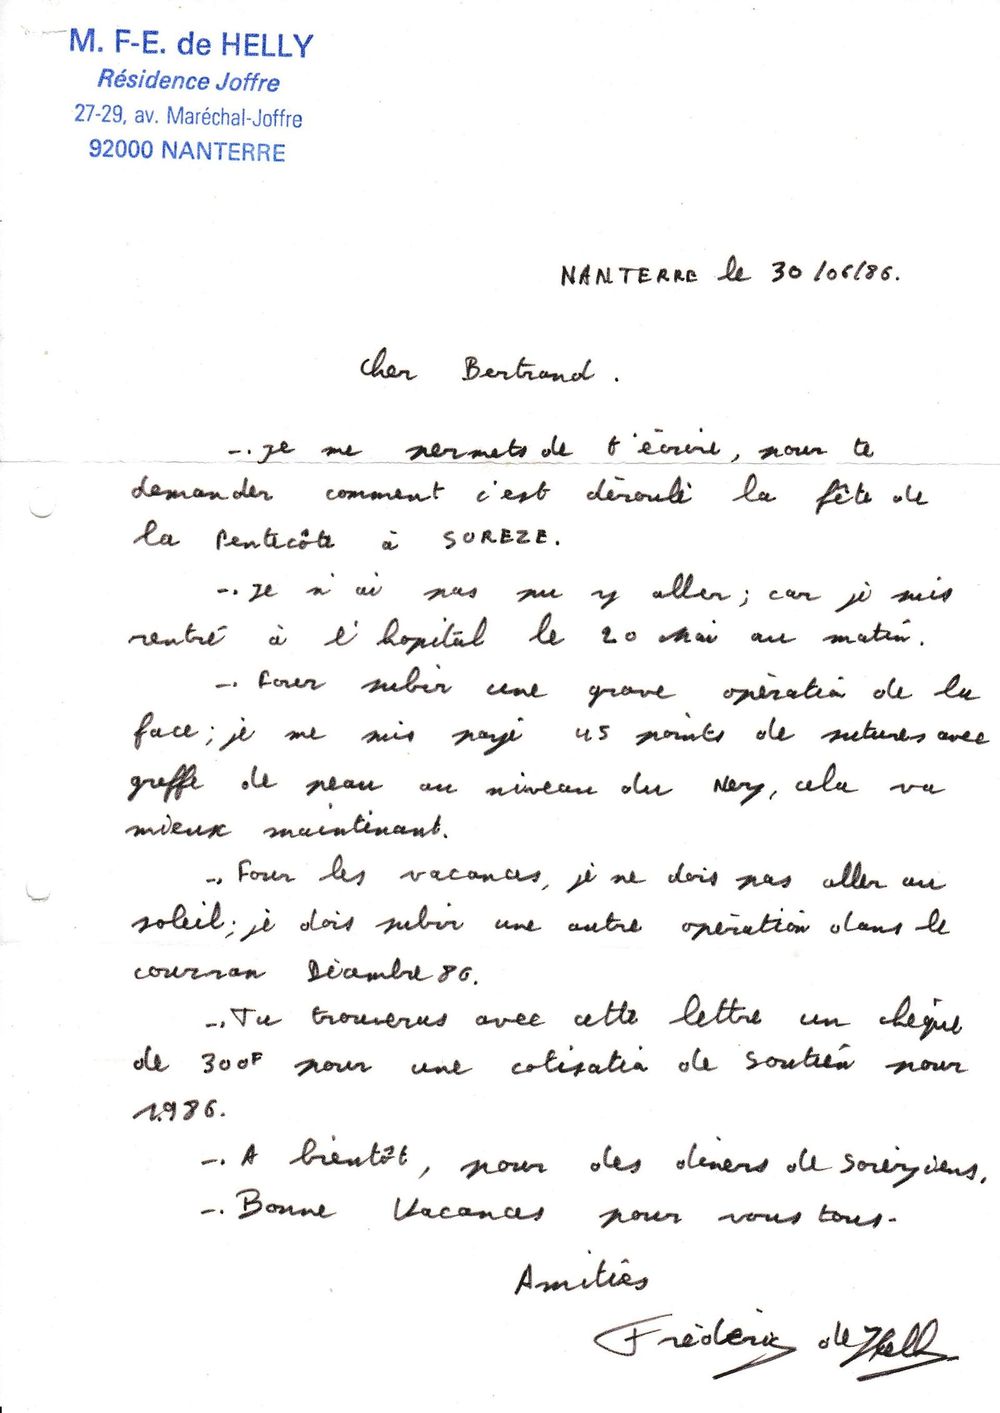 M. F-E. de HELLY
Résidence Joffre
27-29, av. Maréchal-Joffre
92000 NANTERRE
NANTERRE le 30/06/86.
Cher Bertrand.
-. Je me permets de t'écrire, pour te
demander comment c'est déroulé la fête de
la Pentecôte à SOREZE.
-. Je n'ai pas pu y aller; car je suis
rentré à l'hopital le 20 Mai au matin.
-. Pour subir une grave opération de la
face; je me suis payé 45 points de sutures avec
greffe de peau au niveau du Nez, cela va
mieux maintenant.
-. Pour les vacances, je ne dois pas aller au
soleil; je dois subir une autre opération dans le
courran Décembre 86.
-. Tu trouveras avec cette lettre un chèque
de 300F pour une cotisation de Soutien pour
1986.
-. A bientôt, pour des diners de Sorèziens.
-. Bonne Vacances pour vous tous.
Amitiés
Fréderic de Helly